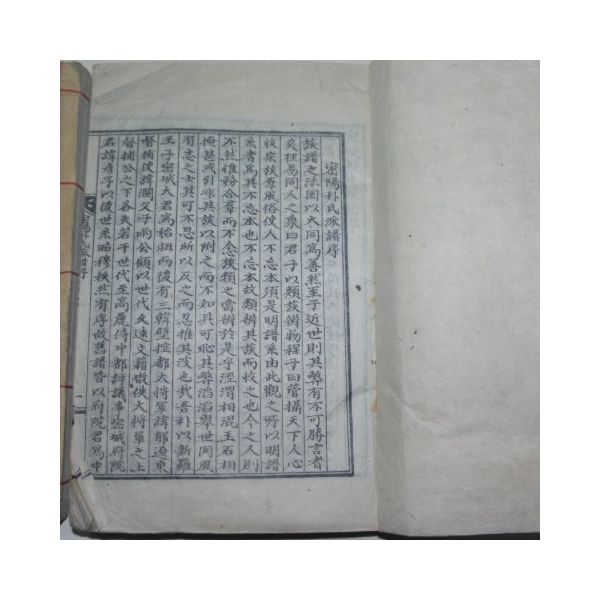 密陽朴氏派譜序
族譜之法固以大同爲善然至于近世則其弊有不可勝言者
矣在易同人之象曰君子以類族辨物程子曰管攝天下人心
收宗族厚風俗使人不忘本須是明譜系由此觀之所以明譜
系者爲其不忘本也不忘本故類辨其族而收之也今之人則
不然惟務合羣而不念族類之當辨於是乎涇渭相混玉石相
掩甚或引非其族以附之而不知其可恥其弊滔滔擧世同風
有志之士其可不思所以反之而忍推其波也哉吾朴以新羅
王子密城大君爲始祖而後有三韓壁控都大將軍諱郁遼東
督捕使諱瀾父子兩公顧以世代久遠文籍散佚大將軍之上
督捕公之下各失若干世代至高麗侍中都評議事密城府院
君諱彦孚以後世系昭穆秩然有序故舊譜皆以府院君爲中
密陽朴氏派譜序
一